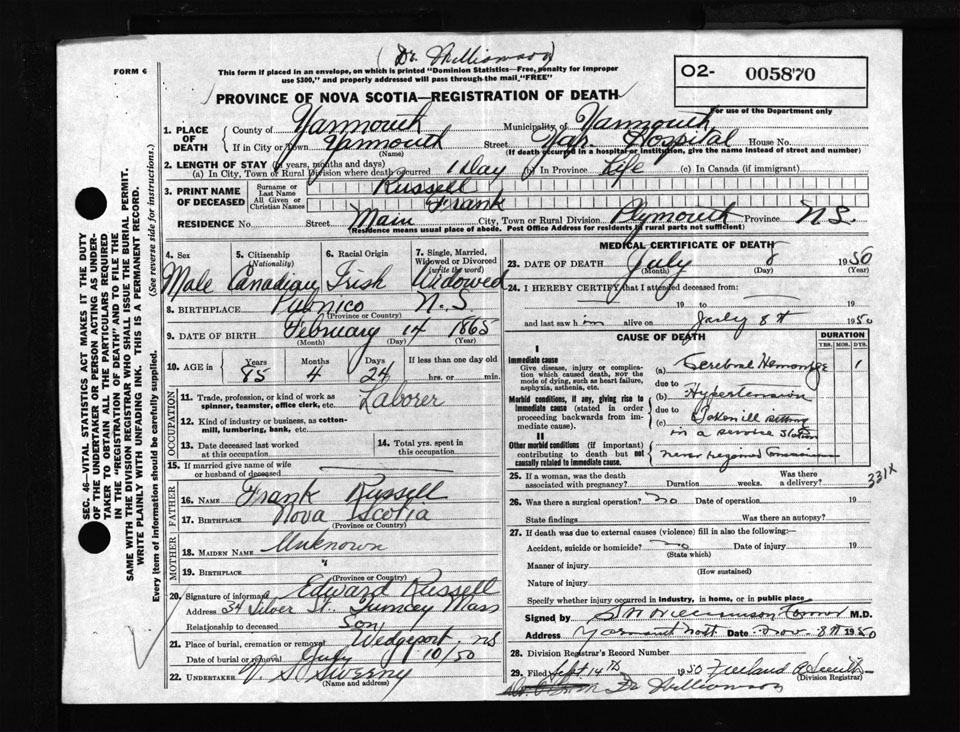 (Dr. Williamson)
FORM 6
This form if placed in an envelope, on which is printed "Dominion Statistics—Free, penalty for improper
use $300," and properly addressed will pass through the mail "FREE"
O2- 005870
For use of the Department only
PROVINCE OF NOVA SCOTIA—REGISTRATION OF DEATH
1. PLACE OF DEATH
County of Yarmouth Municipality of Yarmouth
If in City or Town Yarmouth Street Yar. Hospital House No.
(Name) (If death occurred in a hospital or institution, give the name instead of street and number)
2. LENGTH OF STAY (in years, months and days)
(a) In City, Town or Rural Division where death occurred 1 Day (b) In Province Life (c) In Canada (if immigrant)
3. PRINT NAME OF DECEASED
Surname or Last Name Russell
All Given or Christian Names Frank
RESIDENCE No. Street Main City, Town or Rural Division Plymouth Province N.S.
(Residence means usual place of abode. Post Office Address for Residents in rural parts not sufficient)
4. Sex Male
5. Citizenship (Nationality) Canadian
6. Racial Origin Irish
7. Single, Married, Widowed or Divorced (write the word) Widowed
8. BIRTHPLACE Pubnico N.S
(Province or Country)
9. DATE OF BIRTH February 14 1865
(Month) (Day) (Year)
10. AGE in Years 85 Months 4 Days 24 If less than one day old
hrs. or min.
OCCUPATION
11. Trade, profession, or kind of work as spinner, teamster, office clerk, etc. Laborer
12. Kind of industry or business, as cotton-mill, lumbering, bank, etc.
13. Date deceased last worked at this occupation
14. Total yrs. spent in this occupation
15. If married give name of wife or husband of deceased
FATHER
16. Name Frank Russell
17. Birthplace Nova Scotia
(Province or Country)
MOTHER
18. Maiden Name Unknown
19. Birthplace "
(Province or Country)
20. Signature of informant Edward Russell
Address 34 Silver St. Mass
Relationship to deceased Son
21. Place of burial, cremation or removal Wedgeport N.S
Date of burial or removal July 10/50
22. UNDERTAKER V. S. Sweeny
(Name and address)
MEDICAL CERTIFICATE OF DEATH
23. DATE OF DEATH July 8 1950
(Month) (Day) (Year)
24. I HEREBY CERTIFY that I attended deceased from:
19 to 19
and last saw him alive on July 8th 1950
CAUSE OF DEATH
DURATION
YRS. MOS. DYS.
I
Immediate cause
Give disease, injury or complication which caused death, not the mode of dying, such as heart failure, asphyxia, asthenia, etc.
(a) Cerebral Hemorrhage 1
due to
Morbid conditions, if any, giving rise to immediate cause (stated in order proceeding backwards from immediate cause).
(b) Hypertension
due to
(c) Taken ill sitting
in a service station
II
Other morbid conditions (if important) contributing to death but not causally related to immediate cause.
never regained consciousness
331X
25. If a woman, was the death associated with pregnancy? Duration weeks. Was there a delivery?
26. Was there a surgical operation? no Date of operation 19
State findings Was there an autopsy?
27. If death was due to external causes (violence) fill in also the following:—
Accident, suicide or homicide? no Date of injury 19
(State which)
Manner of injury
(How sustained)
Nature of injury
Specify whether injury occurred in industry, in home, or in public place
Signed by Williamson Coroner M.D.
Address Yarmouth North Date Nov. 8th 1950
28. Division Registrar's Record Number
29. Filed Sept 14th 1950 Freeland A Smith
(Division Registrar)
Dr Williamson
SEC. 46—VITAL STATISTICS ACT MAKES IT THE DUTY
OF THE UNDERTAKER OR PERSON ACTING AS UNDER-
TAKER TO OBTAIN ALL THE PARTICULARS REQUIRED
IN THE "REGISTRATION OF DEATH" AND TO FILE THE
SAME WITH THE DIVISION REGISTRAR WHO SHALL ISSUE THE BURIAL PERMIT.
WRITE PLAINLY WITH UNFADING INK. THIS IS A PERMANENT RECORD.
Every item of information should be carefully supplied. (See reverse side for instructions.)